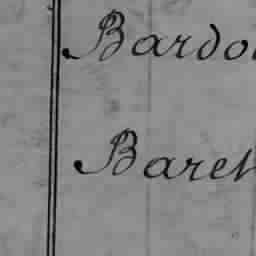 Bardo
Baret